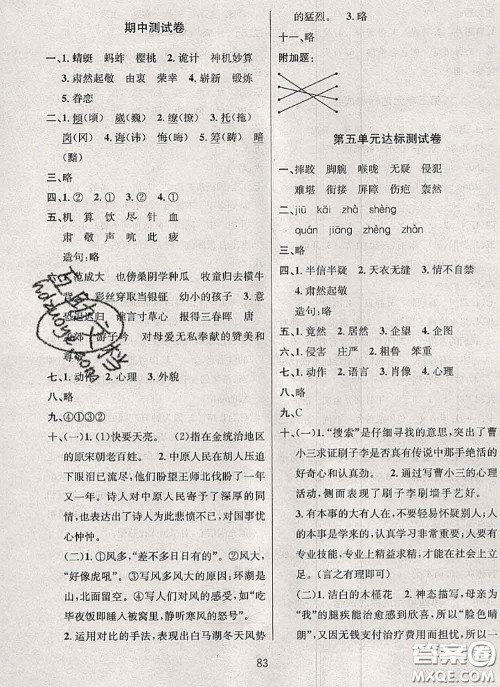 期中测试卷
一、1.蜻蜓 蚂蚱 樱桃 2.诡计 神机妙算
3.肃然起敬 由衷 荣幸 4.崭新 锻炼
5.眷恋
二、(顷) (崴) (缭) 托(拖)
(冈) 海(诲) 悔(侮) 暗
(黯)
三、略
四、1.② ① 2.① ②
五、机 算 饮 尽 针 血
肃 敬 声 吭 此 疲
造句:略
成大 也傍桑阴学种瓜 牧童归去横牛
彩丝穿取当银钲 幼小的孩子
恐迟迟归 谁言寸草心 报得三春晖 唐
郊 游子 对母爱无私奉献的赞美和
七、1.动作 2.心理 3.外貌
八、略
九、④①③②
十、(一)1.(1)快要天亮。 (2)指在金统治地区
的原宋朝老百姓。 2.中原人民在胡人压迫
下眼泪已流尽,他们盼望王师北伐盼了一年
又一年。诗人对中原人民寄予了深切的同
情,表达出了诗人为此悲愤不已,对国事忧
心忡忡。
(二)1.①风多,“差不多日日有风”。②风大,
“好像虎吼”。③写风多风大的原因:环湖是
山,北面山口缺风大。④举例说明,如,“吃
毕夜饭即睡入被窝里,静听寒风的怒号”。
2.运用对比的手法,表现出白马湖冬天风势
的猛烈。 3.略
十一、略
附加题:
第五单元达标测试卷
一、摔跤 脚腕 喉咙 无疑 侵犯
难堪 衔接 屏障 伤疤 轰然
二、jiū kāi zhà shèng
quán jiāng zhēng zhà
三、略
四、1.半信半疑 2.天衣无缝 3.情不自禁
4.肃然起敬
五、1.竟然 2.居然 3.企望 4.企图
六、1.宽阔 庄严 2.粗鲁 笨重
七、1.动作 2.语言 3.肖像 4.心理
八、略
九、C
十、(一)1.“搜索”是仔细寻找的意思,突出了曹
小三求证刷子李是否真有传说中那手绝活的
好奇心和认真劲。 2.通过写曹小三的心理
活动,侧面表现了刷子李刷墙手艺好。
3.有本事的大人有很大,不要轻易怀疑别人;有真
本事的人,让人学习非常不容易;人要有
专业技能,专业上精益求精,才能有大出息。
(言之有理即可)
(二)1.洁白的木槿花 2.神态描写,母亲为
“我”的腿疾能治愈感到欣喜,所以“脸色晴
朗”,又因无钱支付治疗费用而担忧,
83